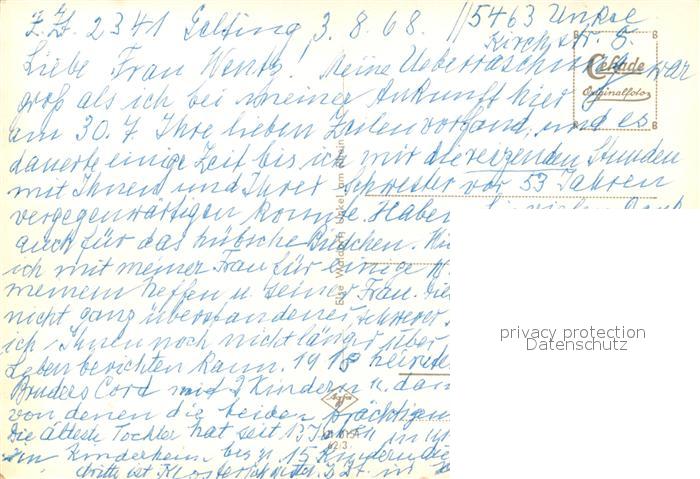 z. Zt. 2341 Gelting, 3.8.68. // 5463 Unkel
Kirchstr. 5.
Liebe Frau Wentz! Meine Ueberraschung war
groß als ich bei meiner Ankunft hier
am 30.7. Ihre lieben Zeilen vorfand, und es
dauerte einige Zeit bis ich mir die reizenden Stunden
mit Ihnen und Ihrer Schwester vor 53 Jahren
vergegenwärtigen konnte. Haben Sie vielen Dank
auch für das hübsche Bildchen.
ich mit meiner Frau für einige
meinem Neffen u. seiner Frau.
nicht ganz überstandener schwerer
ich Ihnen noch nicht länger über
Leben berichten kann. 1918 heiratete
Bruders Cord mit 2 Kindern u. dan
von denen die beiden prächtigen
Die älteste Tochter hat seit 13 Jahren
ein Kinderheim bis zu 15 Kindern die
dritte ist z. Zt. in
Cekade
Originalfoto
B
B
B
B
Else Waldorf, Unkel am Rhein
Agfa
privacy protection
Datenschutz